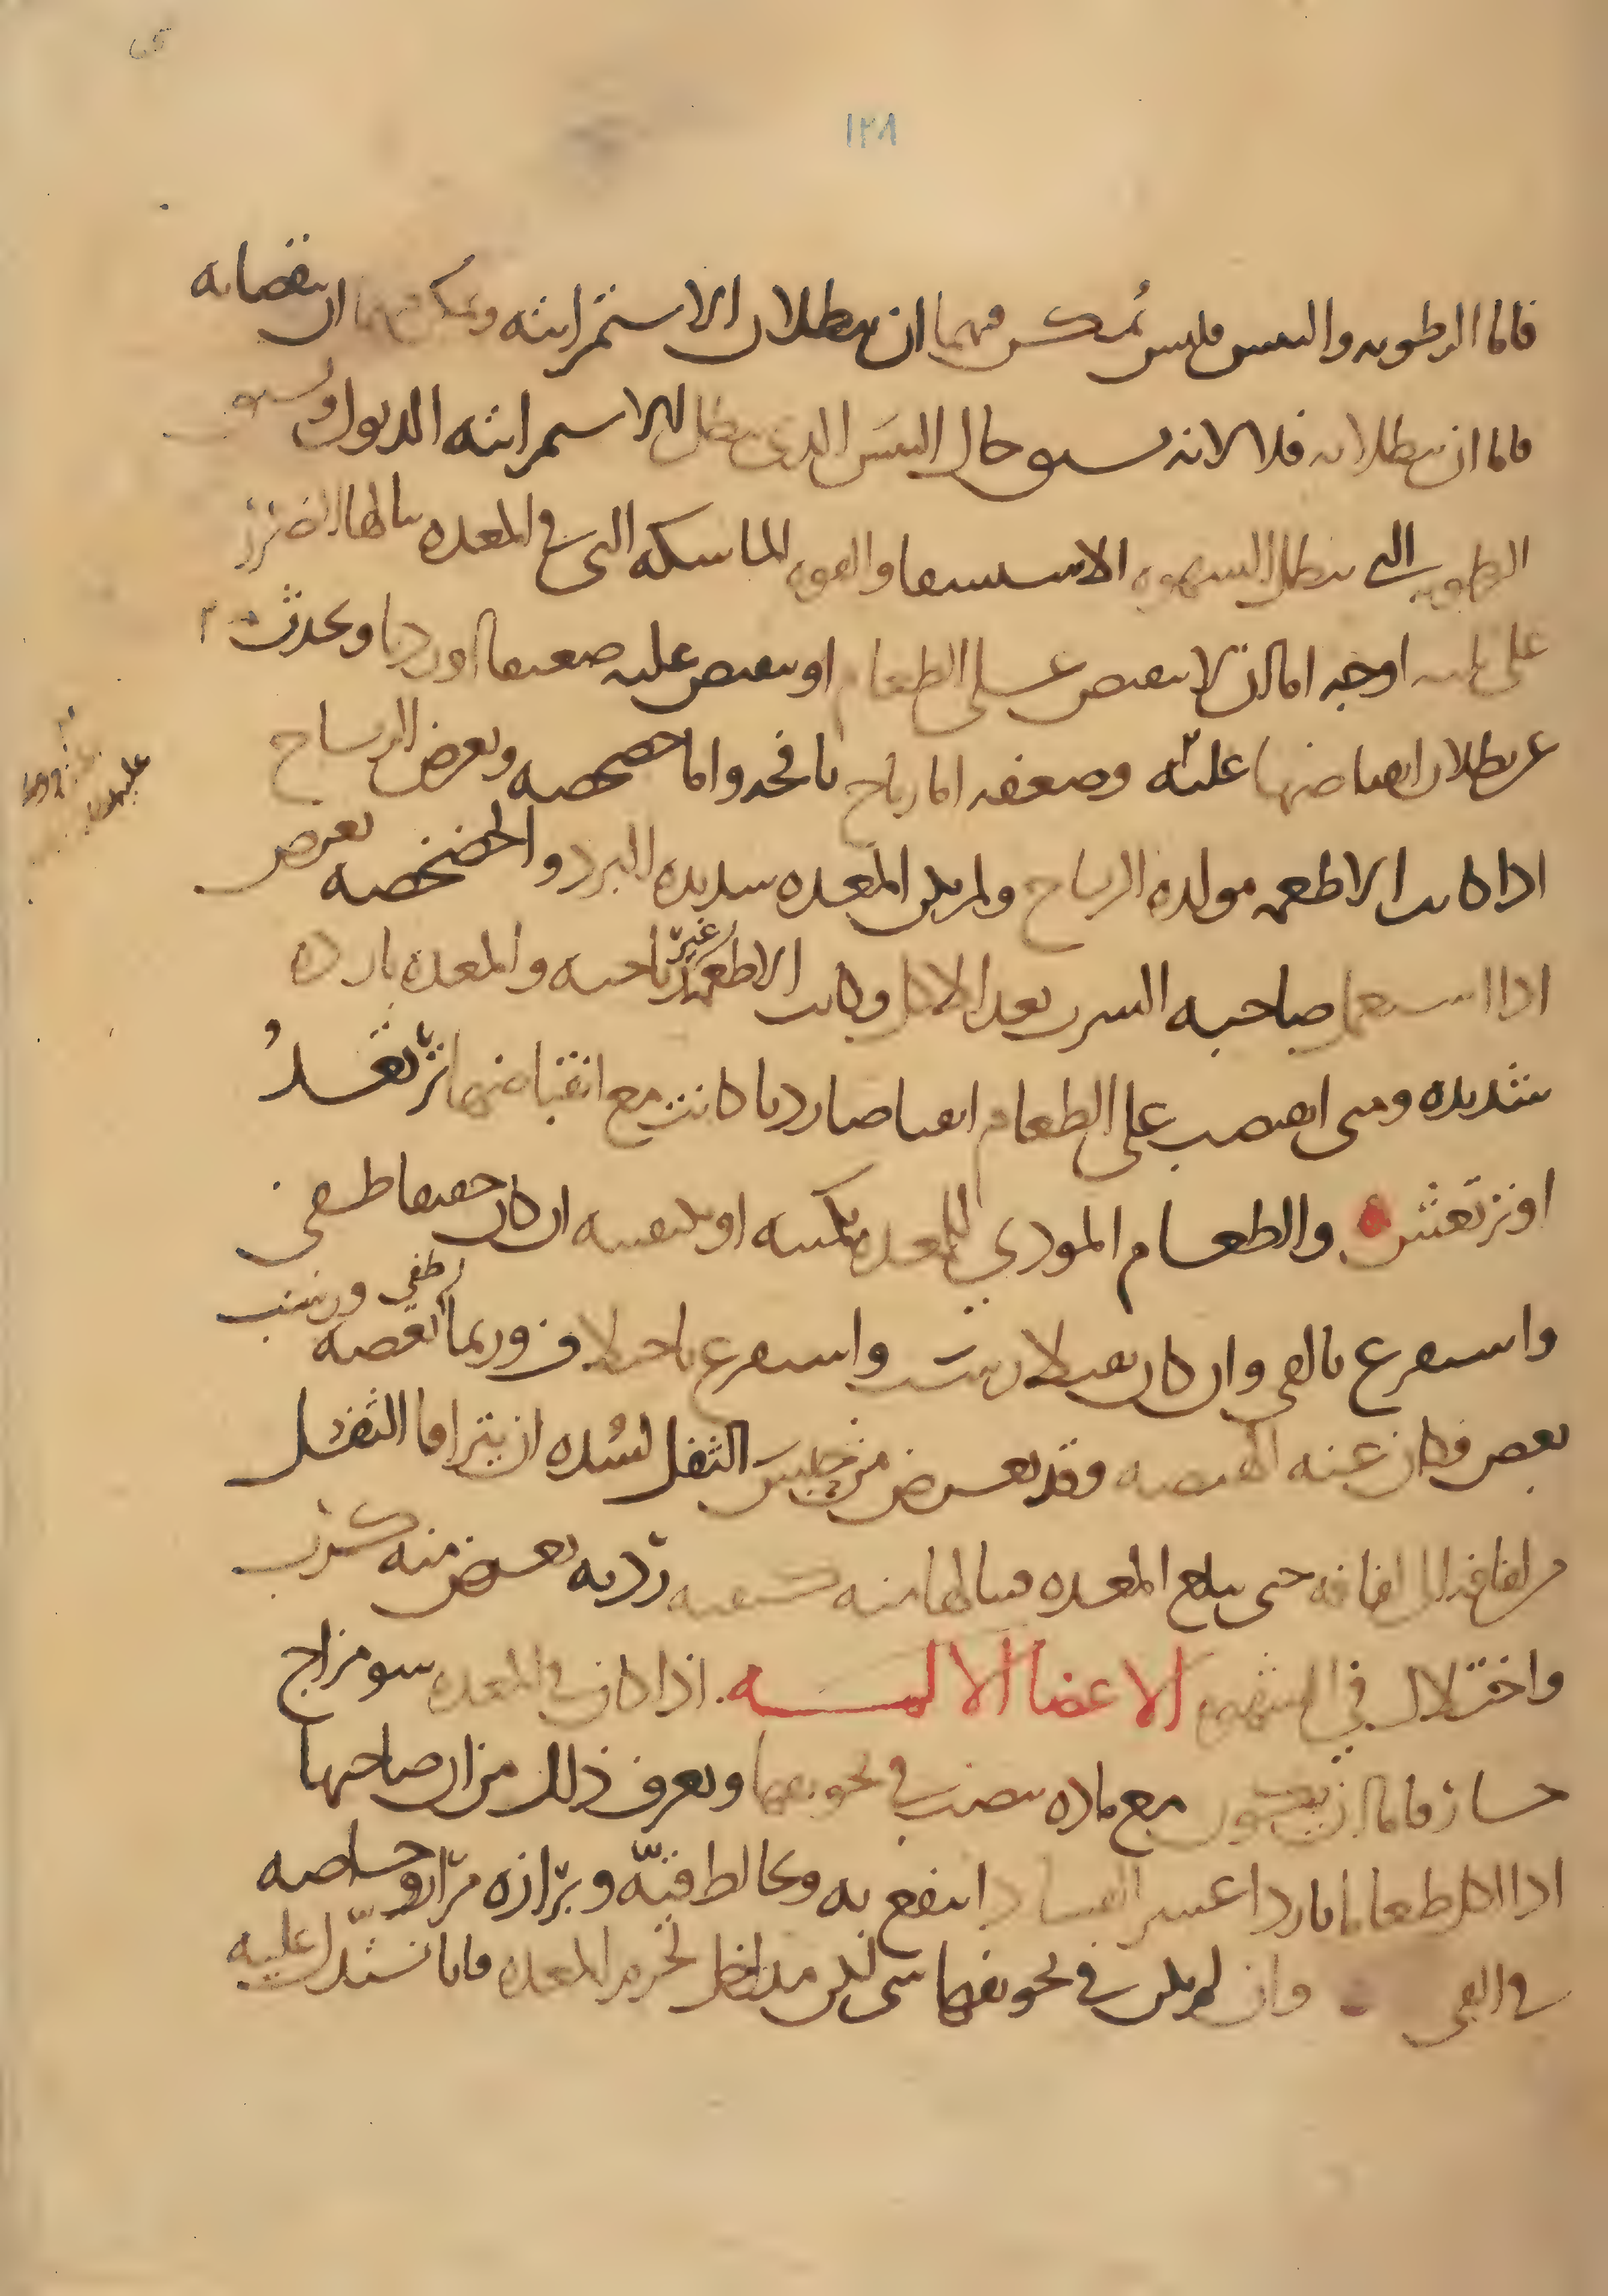 ١٢٨
فاما الرطوبه واليبس فليس يمكن فيهما ان يبطلان الاستمرائه ويمكن فيهما ان ينقصانه
فاما ان يبطلانه فلا لانه يسبق حال اليبس الذى يبطل للاستمرائه الدبول ويسبق
الرطوبه التى يبطل الشهوه الاستسقا والقوه الماسكه التى فى المعده ينالها الضرر
على ثلثه اوجه اما ان لا يقبض على الطعام او يقبض عليه ضعيفا او رديا ويحدث
عن بطلان انقباضها عليه وضعفه اما رياح نافخه واما خضخضه وتعرض الرياح
اذا كانت الاطعمه مولده الرياح ولم يكن المعده شديده البرد والخضخضه تعرض
اذا استعمل صاحبه الشرب بعد الاكل وكانت الاطعمه غير رياحيه والمعده بارده
شديده ومتى انقبضت على الطعام انقباضا رديا كانت مع انقباضها ترتعد
او ترتعش والطعام الموذي للمعده بكميته او بكيفيته ان كان خفيفا طفى
واستفرغ بالقى وان كان ثقيلا رسب واستفرغ باختلاف وربما بعضه طفى ورسب
بعض فكان عنه الهيضه وقد يعرض من حبس الثفل لسده ان يترا اما الثفل
من لفافه الى لفافه حتى يبلغ المعده فينالها منه كيفيه رديه يعرض منه كرب
واختلال في الشهوه الاعضا الاليه اذا كان فى المعده سو مزاج
حار فاما ان يكون مع ماده تنصب في تجويفها ويعرف ذلك من ان صاحبها
اذا اكل طعاما باردا عسر الفساد انتفع به ويخالط قيّه وبرازه مرار وخاصه
فى القى وان لم يكن في تجويفها شى لكن مداخل لجرم المعده فانا نستدل عليه